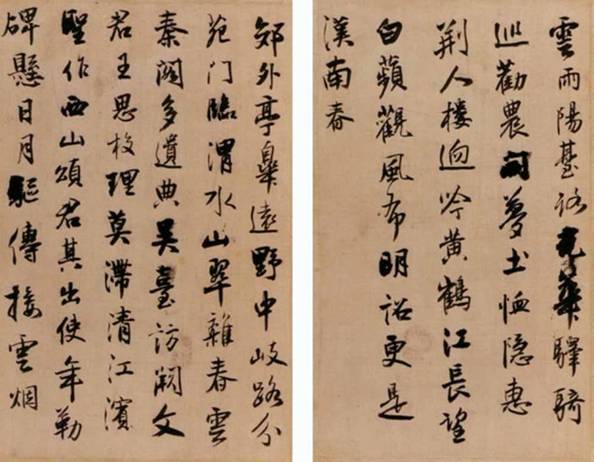 雲雨陽臺路光華驛騎
巡勸農開夢土恤隱惠
荆人楼迥吟黄鶴江長望
白蘋觀風布明詔更是
漢南春
郊外亭皋遠野中岐路分
苑门臨渭水山翠雜春雲
秦閣多遺典吴臺訪闕文
君王思校理莫滯清江濱
聖作西山頌君其出使年勒
碑懸日月驅傳接雲烟